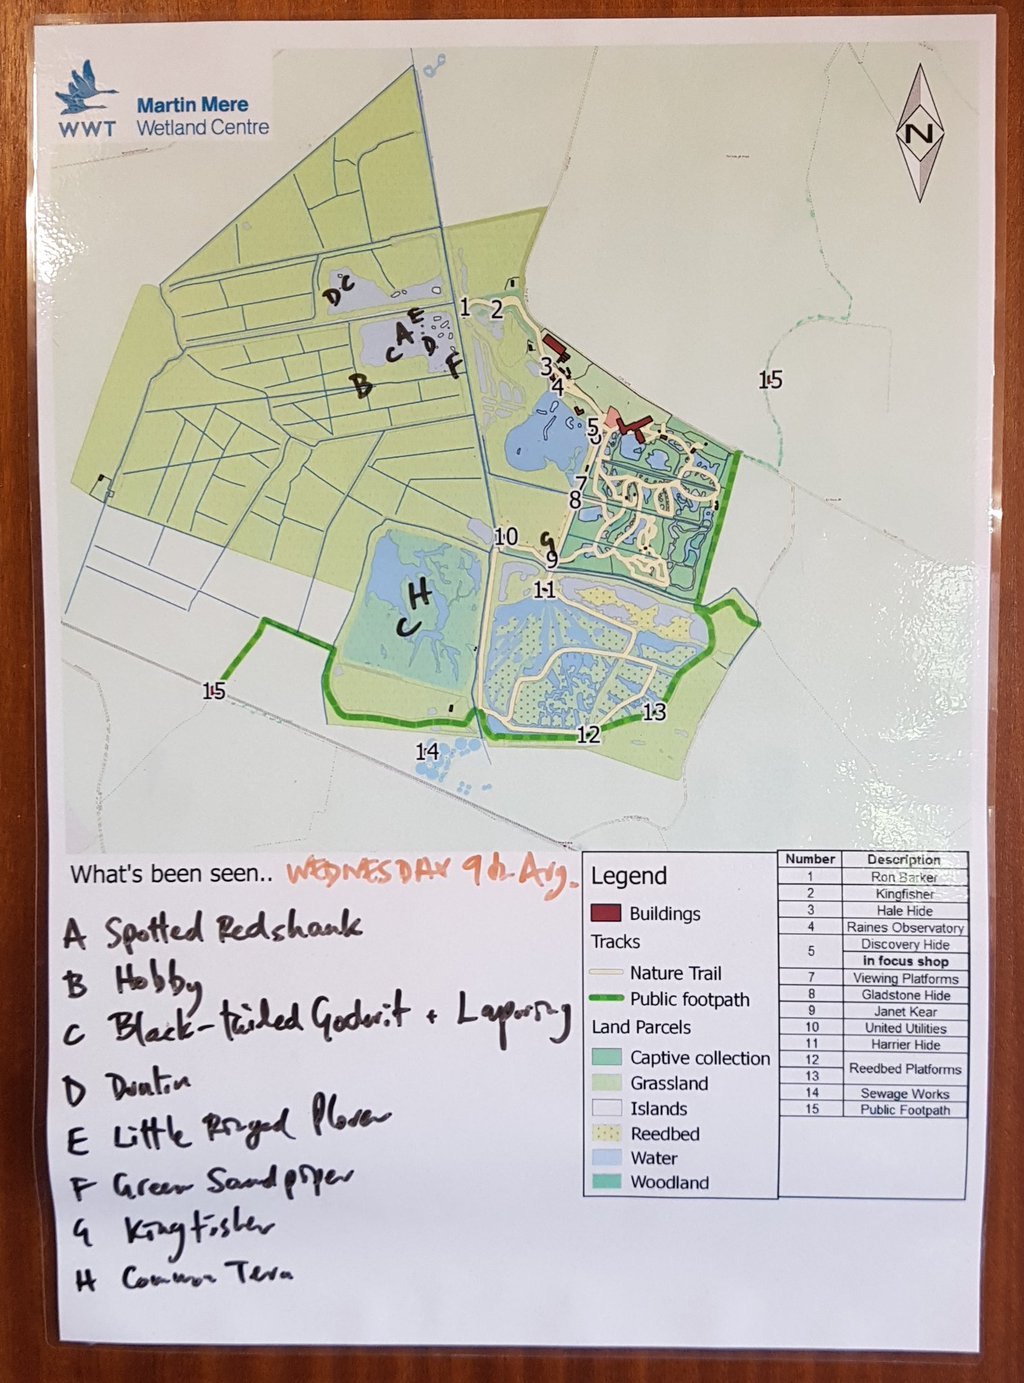 WWT
Martin Mere
Wetland Centre
N
D C
E
A
C D
F
B
1
2
3
4
15
5
6
7
8
G
10
9
11
H
C
15
13
12
14
What's been seen.. WEDNESDAY 9th Aug.
A Spotted Redshank
B Hobby
C Black-tailed Godwit + Lapwing
D Dunlin
E Little Ringed Plover
F Green Sandpiper
G Kingfisher
H Common Tern
Legend
Buildings
Tracks
Nature Trail
Public footpath
Land Parcels
Captive collection
Grassland
Islands
Reedbed
Water
Woodland
Number Description
1 Ron Barker
2 Kingfisher
3 Hale Hide
4 Raines Observatory
5 Discovery Hide
in focus shop
7 Viewing Platforms
8 Gladstone Hide
9 Janet Kear
10 United Utilities
11 Harrier Hide
12 Reedbed Platforms
13
14 Sewage Works
15 Public Footpath